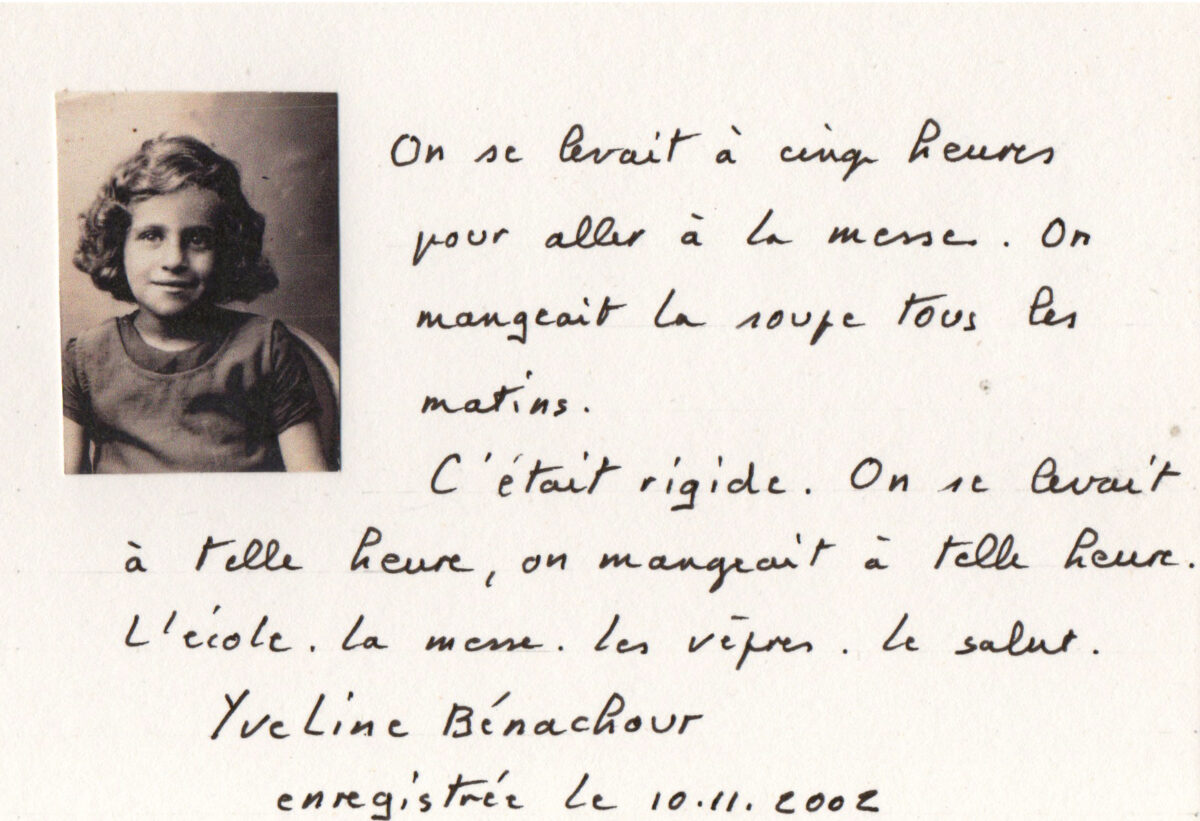 On se levait à cinq heures
pour aller à la messe. On
mangeait la soupe tous les
matins.
C'était rigide. On se levait
à telle heure, on mangeait à telle heure.
L'école. la messe. les vêpres. le salut.
Yveline Bénachour
enregistrée le 10.11.2002